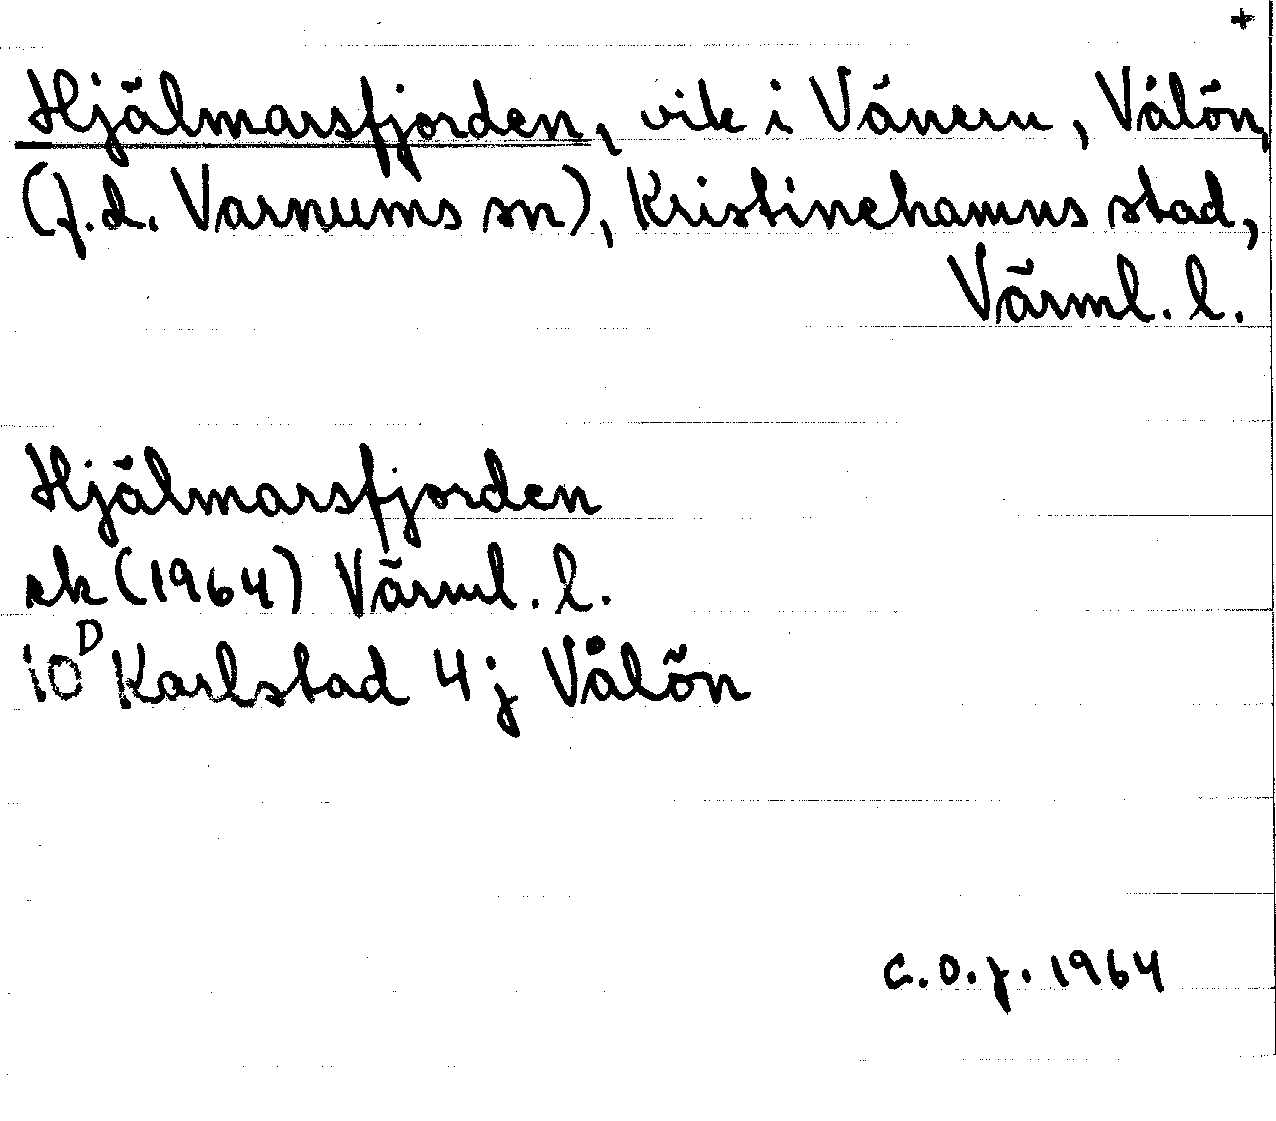 +
Hjälmarsfjorden, vik i Vänern, Vålön,
(f.d. Varnums sn), Kristinehamns stad,
Värml. l.
Hjälmarsfjorden
ek (1964) Värml. l.
10D Karlstad 4j Vålön
C.O.J. 1964